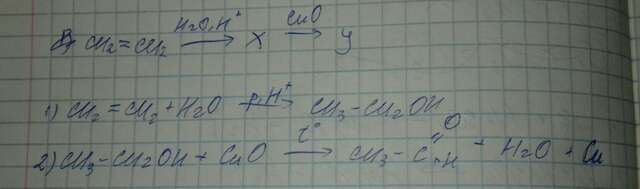 CH2=CH2 H2O,H+ → X CuO → Y
1) CH2=CH2+H2O p,H+ → CH3-CH2OH
2) CH3-CH2OH + CuO t° → CH3-C=O H + H2O + Cu